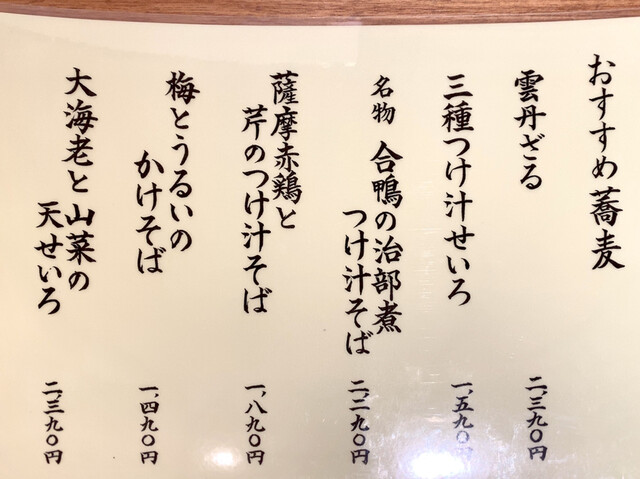 おすすめ蕎麦
雲丹ざる
二、三九〇円
三種つけ汁せいろ
一、五九〇円
名物 合鴨の治部煮
つけ汁そば
二、二九〇円
薩摩赤鶏と
芹のつけ汁そば
一、八九〇円
梅とうるいの
かけそば
一、四九〇円
大海老と山菜の
天せいろ
二、三九〇円